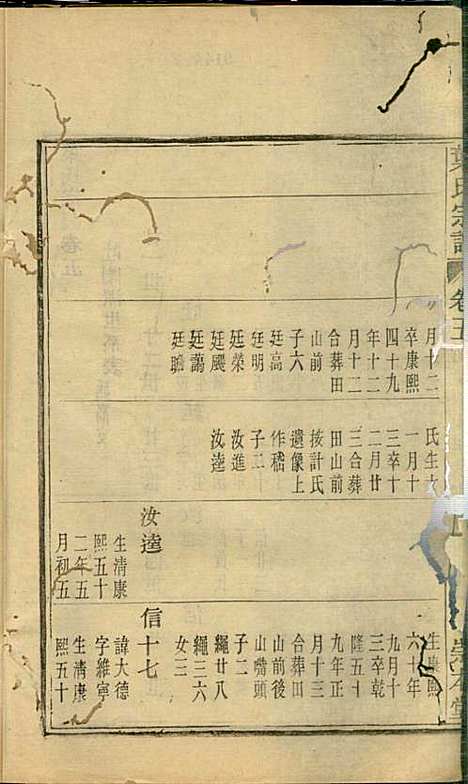 葉氏宗譜
卷五
月十二
卒康熙
四十九
年十二
月十二
合葬田
山前
子六
廷高
廷明
廷榮
廷颺
廷藹
廷瞻
氏生
一月十
三卒十
二月廿
三合葬
田山前
按計氏
遺像上
作嵇
子二
汝進
汝逵
汝逵
生清康
熙五十
二年五
月初五
生康熙
六十年
九月十
三卒乾
隆五十
九年正
月十三
合葬田
山前後
山嘴頭
子二
繩廿八
繩三六
女三
信十七
諱大德
字維寧
生清康
熙五十